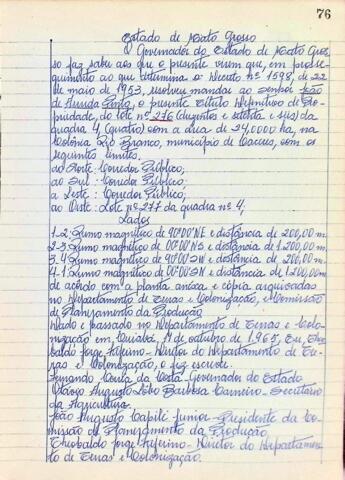 76
Estado de Mato Grosso
O Governador do Estado de Mato Gros
so faz saber aos que o presente virem que, em prosse
guimento ao que determina o Decreto nº 1598, de 22
de maio de 1953, resolveu mandar ao senhor João
de Arruda Pinto, o presente Título Definitivo de Pro
priedade, do lote nº 276 (duzentos e setenta e seis) da
quadra 4 (quatro) com a área de 24,0000 ha, na
Colônia Rio Branco, município de Cáceres, com os
seguintes limites.
ao Norte: Corredor Público;
ao Sul: Corredor Público;
a Leste: Corredor Público;
ao Oeste: Lote nº 277 da quadra nº 4,
Lados
1-2: Rumo magnético de 90º00'NE e distância de 200,00 m.
2-3: Rumo magnético de 00º00'NS e distância de 1.200,00 m.
3-4: Rumo magnético de 90º00'SW e distância de 200,00 m.
4-1: Rumo magnético de 00º00'SN e distância de 1.200,00m
de acôrdo com a planta anexa e cópia arquivadas
no Departamento de Terras e Colonização, e Comissão
de Planejamento da Produção
Dado e passado no Departamento de Terras e Colo
nização em Cuiabá, 14 de outubro de 1965, Eu, Theo
baldo Jorge Ziferino - Diretor do Departamento de Ter
ras e Colonização, o fiz escrever.
Fernando Corrêa da Costa - Governador do Estado
Otávio Augusto Lobo Barbosa Carneiro - Secretário
da Agricultura
João Augusto Capilé Junior - Presidente da Co
missão de Planejamento da Produção
Theobaldo Jorge Ziferino - Diretor do Departamen
to de Terras e Colonização.